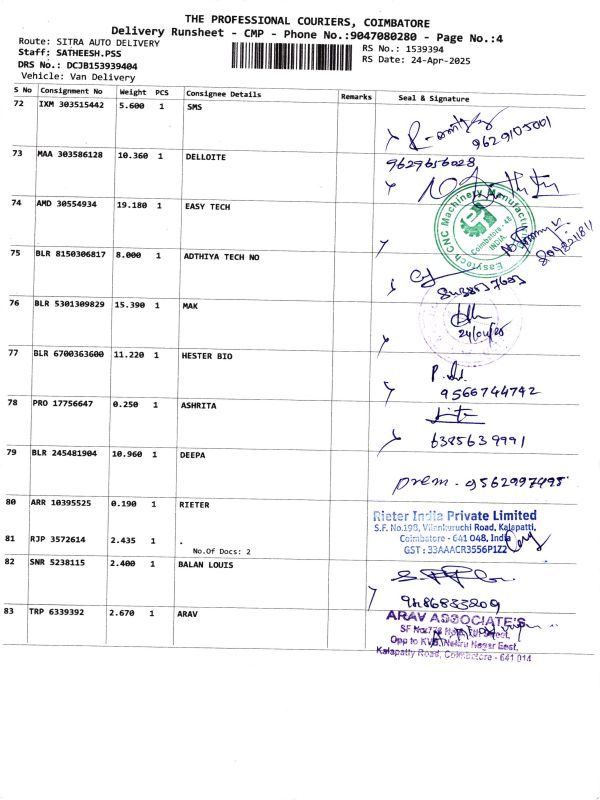 THE PROFESSIONAL COURIERS, COIMBATORE
Delivery Runsheet - CMP - Phone No.:9047080280 - Page No.:4
Route: SITRA AUTO DELIVERY
RS No.: 1539394
Staff: SATHEESH.PSS
RS Date: 24-Apr-2025
DRS No.: DCJB153939404
Vehicle: Van Delivery
S No Consignment No Weight PCS Consignee Details Remarks Seal & Signature
72 IXM 303515442 5.600 1 SMS
9629105001
73 MAA 303586128 10.360 1 DELLOITE
9629656028
74 AMD 30554934 19.180 1 EASY TECH
Easytech CNC Machinery Manufactur
Coimbatore - 48
INDIA
75 BLR 8150306817 8.000 1 ADTHIYA TECH NO
76 BLR 5301309829 15.390 1 MAK
24/04/25
77 BLR 6700363600 11.220 1 HESTER BIO
9566744742
78 PRO 17756647 0.250 1 ASHRITA
6385639991
79 BLR 245481904 10.960 1 DEEPA
prem - 9562997495
80 ARR 10395525 0.190 1 RIETER
Rieter India Private Limited
S.F. No.198, Vilankuruchi Road, Kalapatti,
Coimbatore - 641 048, India
GST : 33AAACR3556P1Z2
81 RJP 3572614 2.435 1 .
No.Of Docs: 2
82 SNR 5238115 2.400 1 BALAN LOUIS
9486833209
83 TRP 6339392 2.670 1 ARAV
ARAV ASSOCIATE'S
Opp to KVB, Nehru Nagar East,
Kalapatty Road, Coimbatore - 641 014